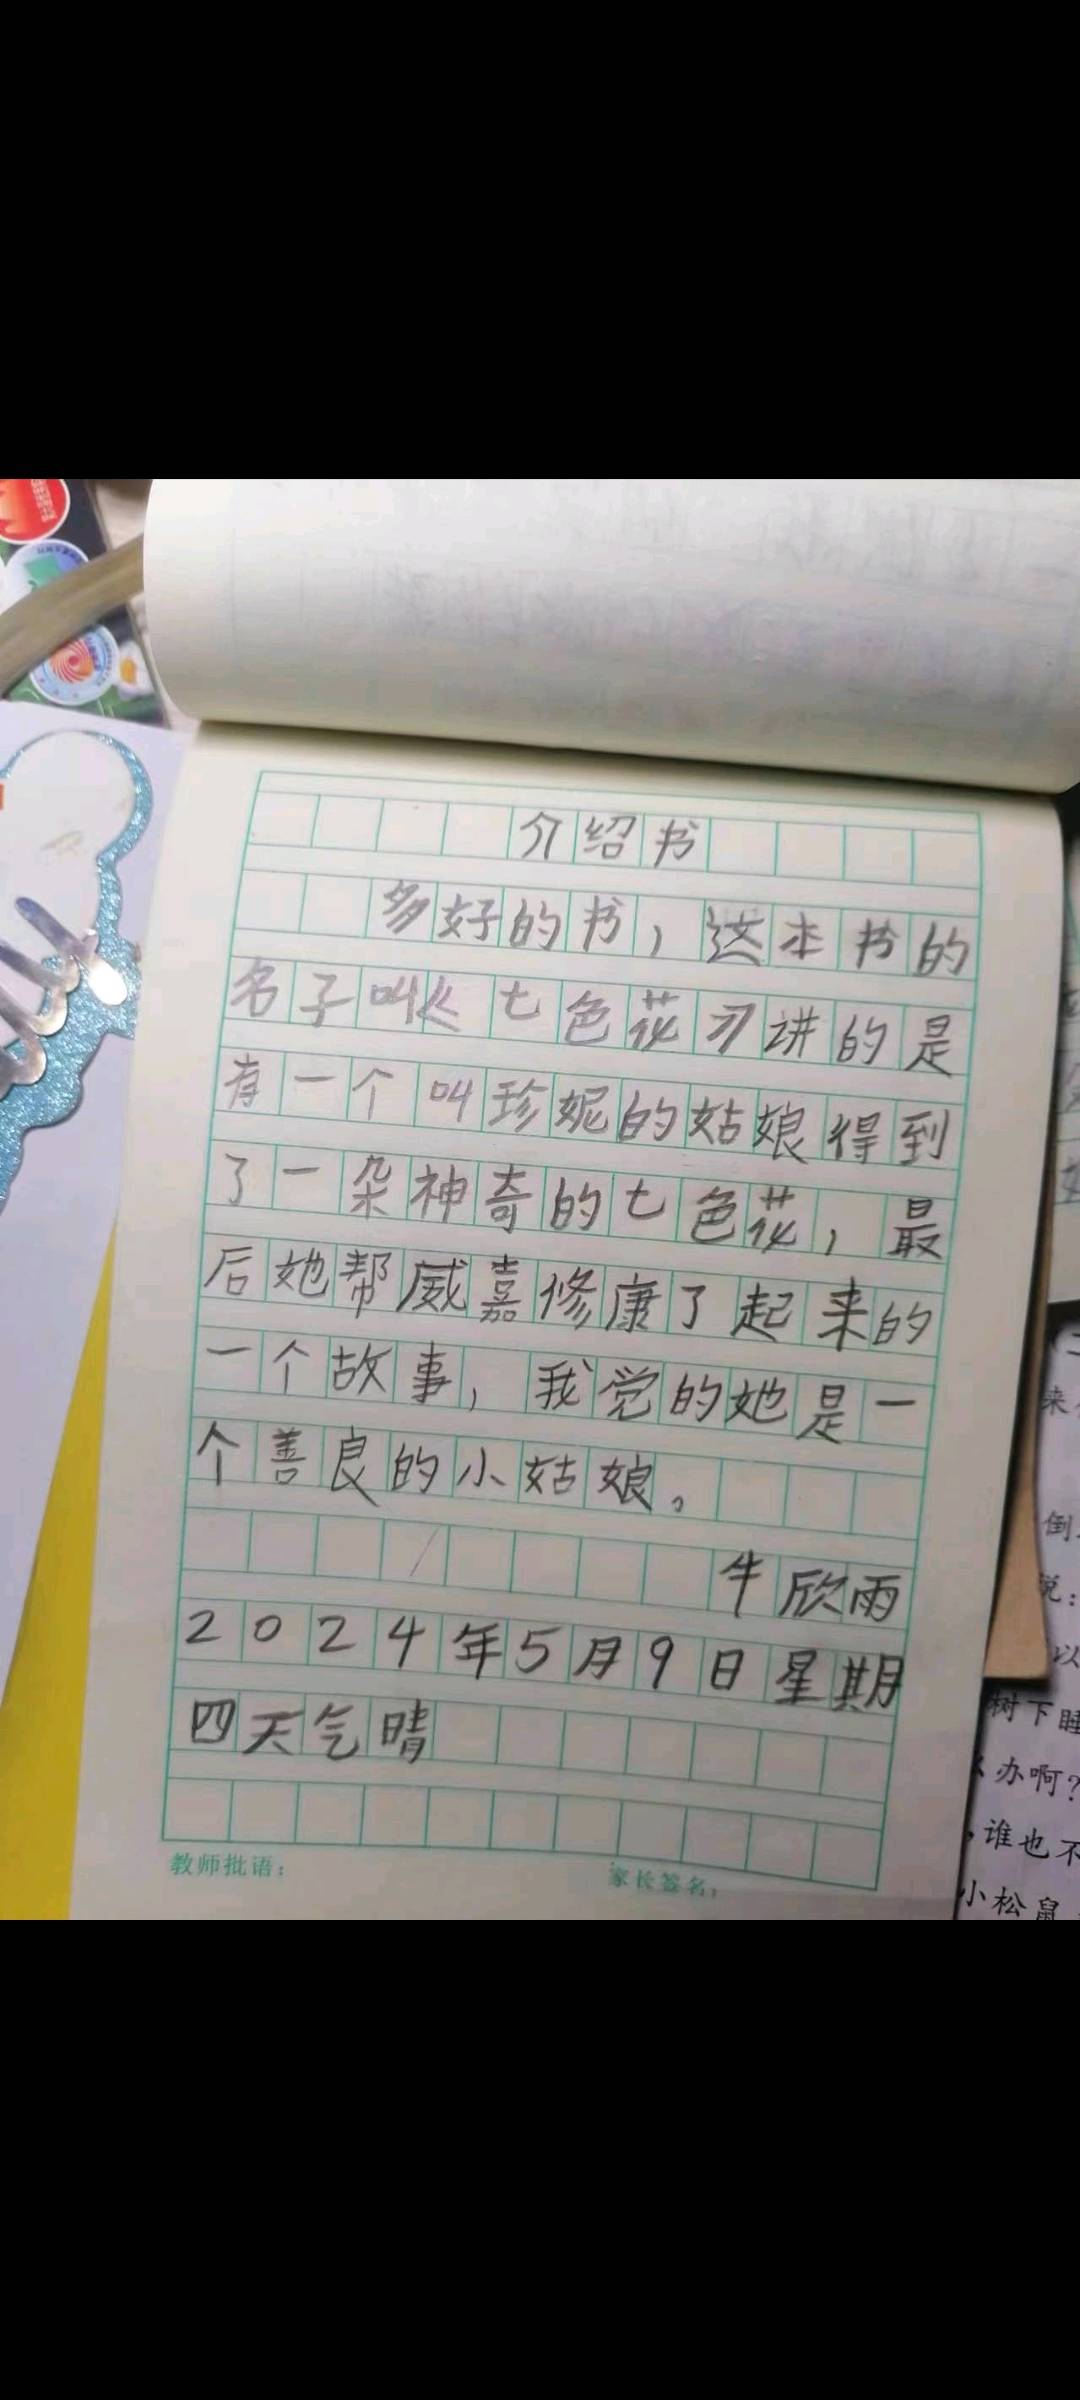 介绍书
多好的书，这本书的
名子叫《七色花》讲的是
有一个叫珍妮的姑娘得到
了一朵神奇的七色花，最
后她帮威嘉修康了起来的
一个故事，我觉的她是一
个善良的小姑娘。
牛欣雨
2024年5月9日星期
四天气晴
教师批语：
家长签名：
来
倒
说：
以
树下睡
办啊？
，谁也不
小松鼠